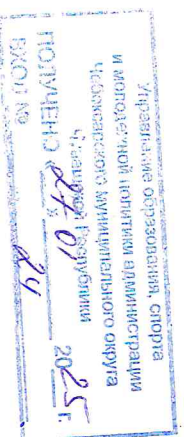 Управление образования, спорта
и молодежной политики администрации
Чебоксарского муниципального округа
Чувашской Республики
ПОЛУЧЕНО «27» 01 2025 г.
ВХОД № 24